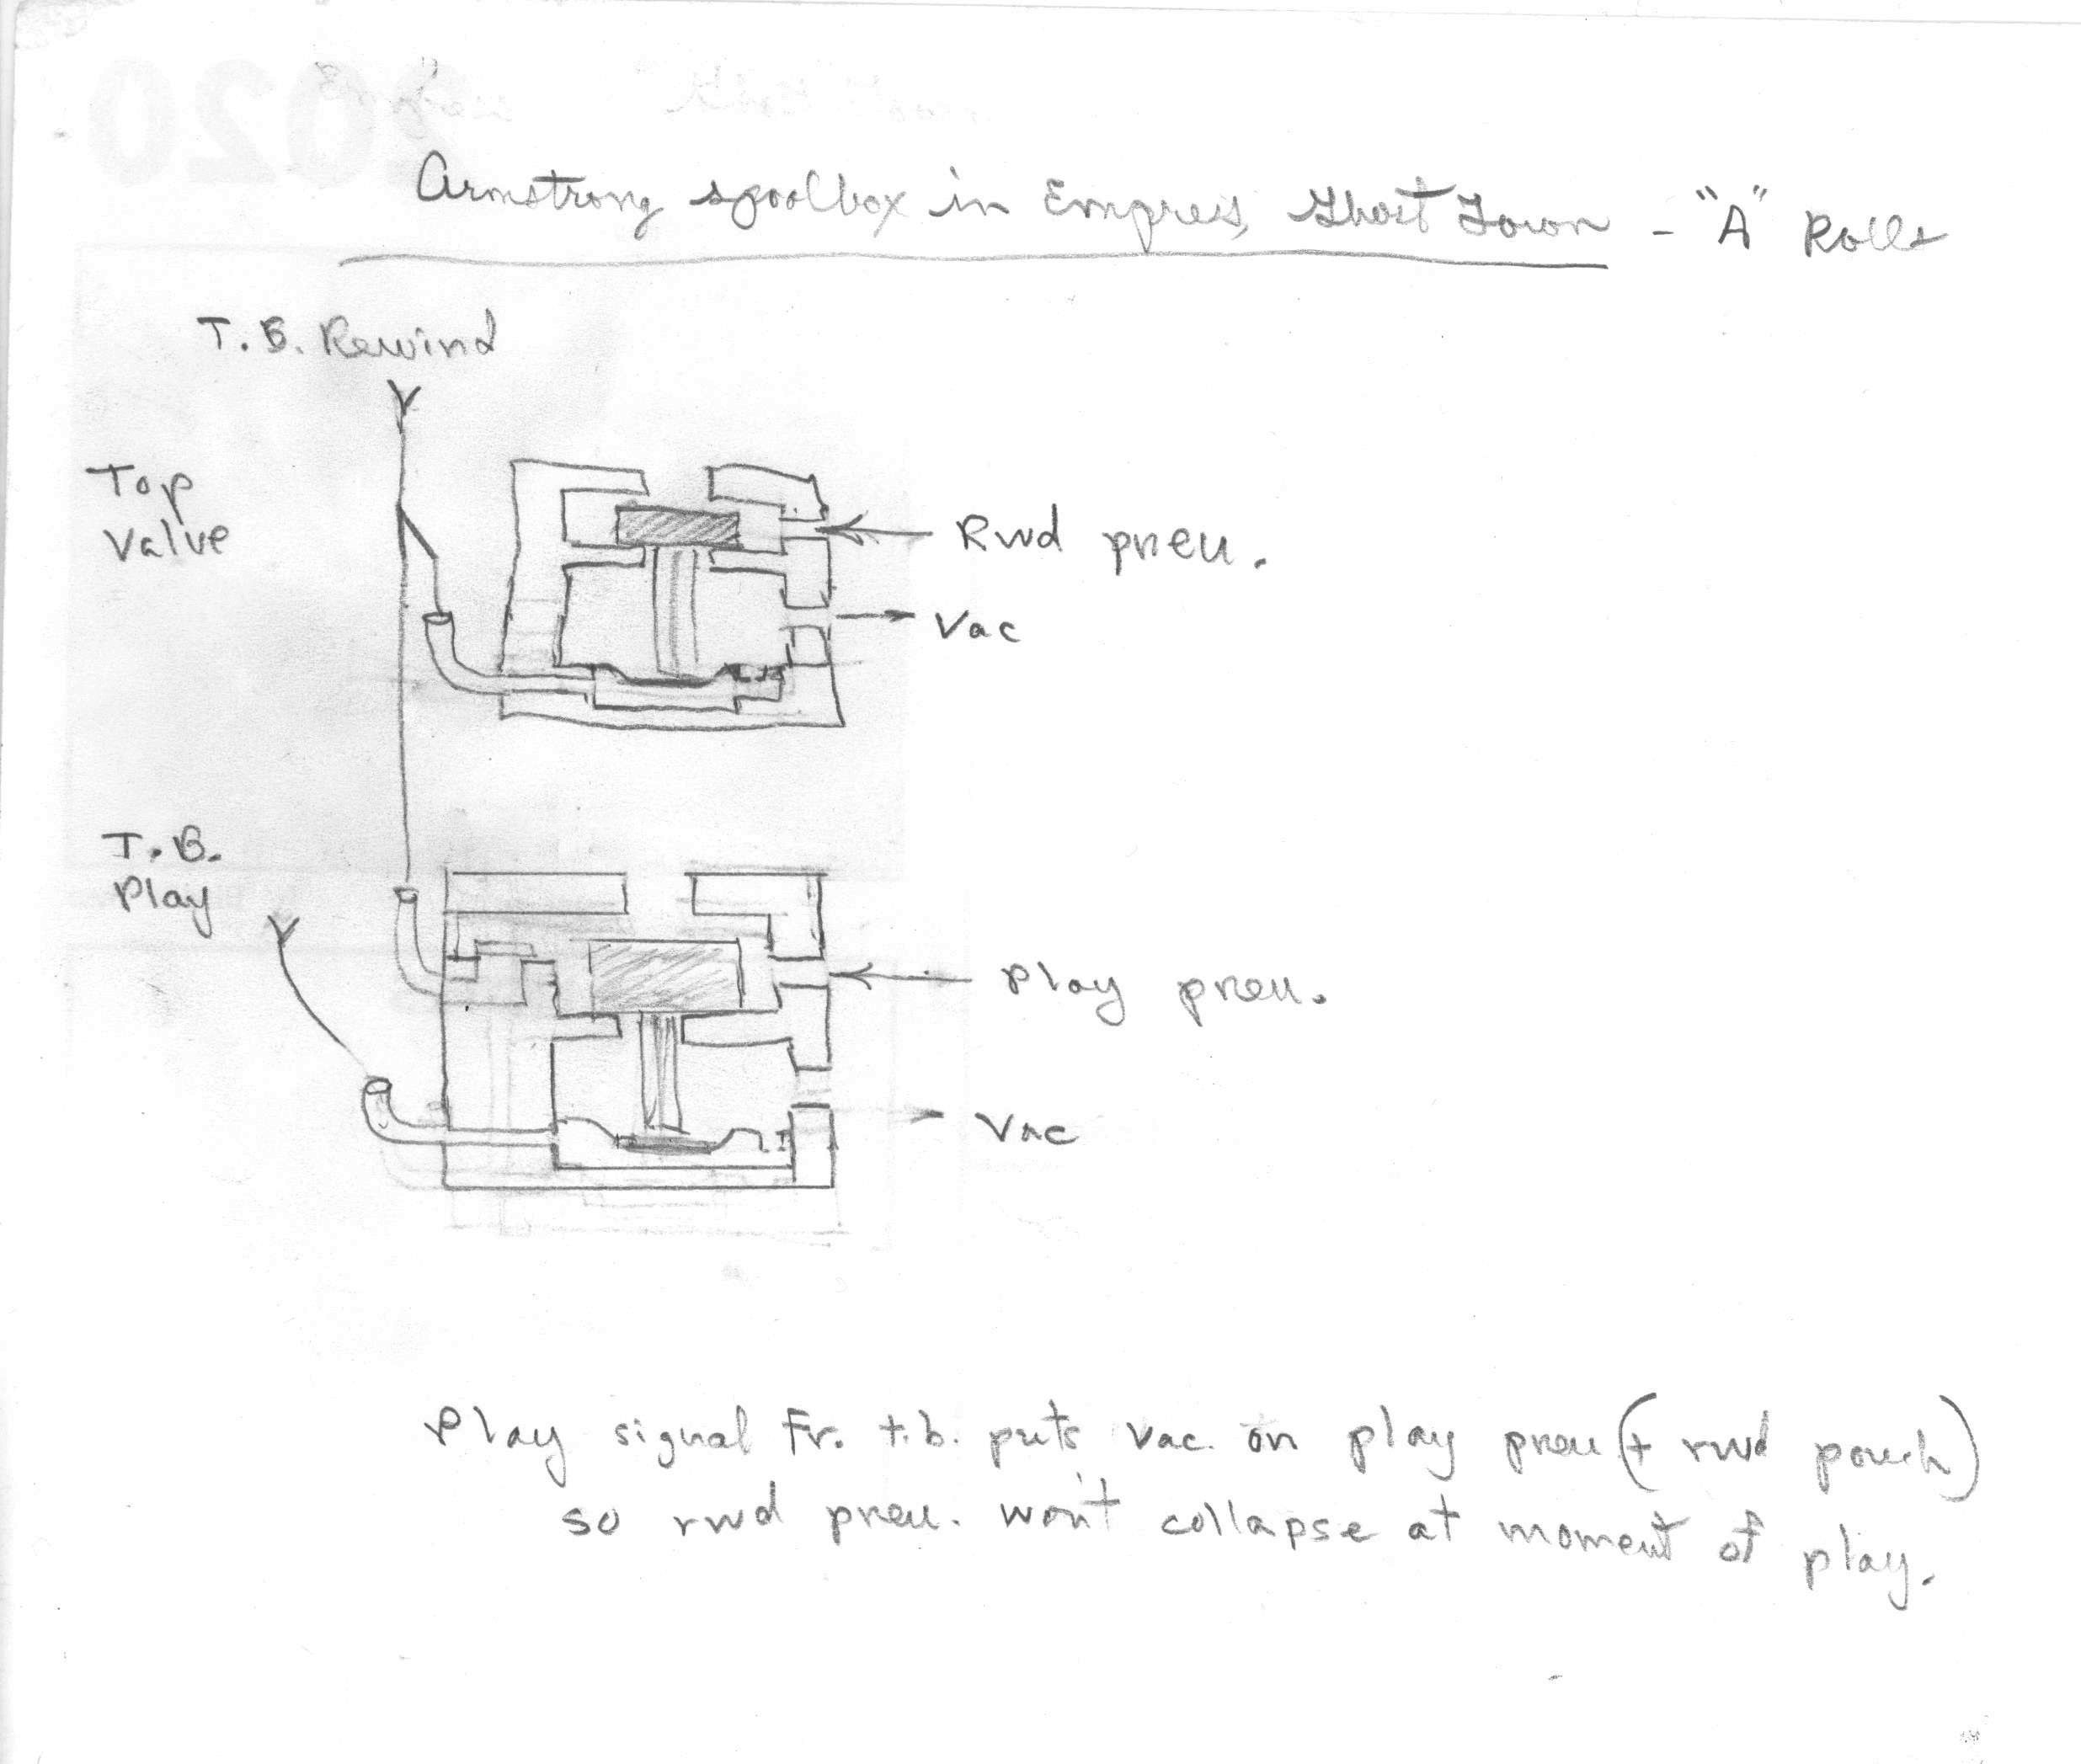 Armstrong spoolbox in Empress, Ghost Town - "A" Rolls
T.B. Rewind
Top
Valve
Rwd pneu.
Vac
T.B.
Play
Play pneu.
Vac
Play signal Fr. t.b. puts vac. on play pneu (+ rwd pouch)
so rwd pneu. won't collapse at moment of play.
2020